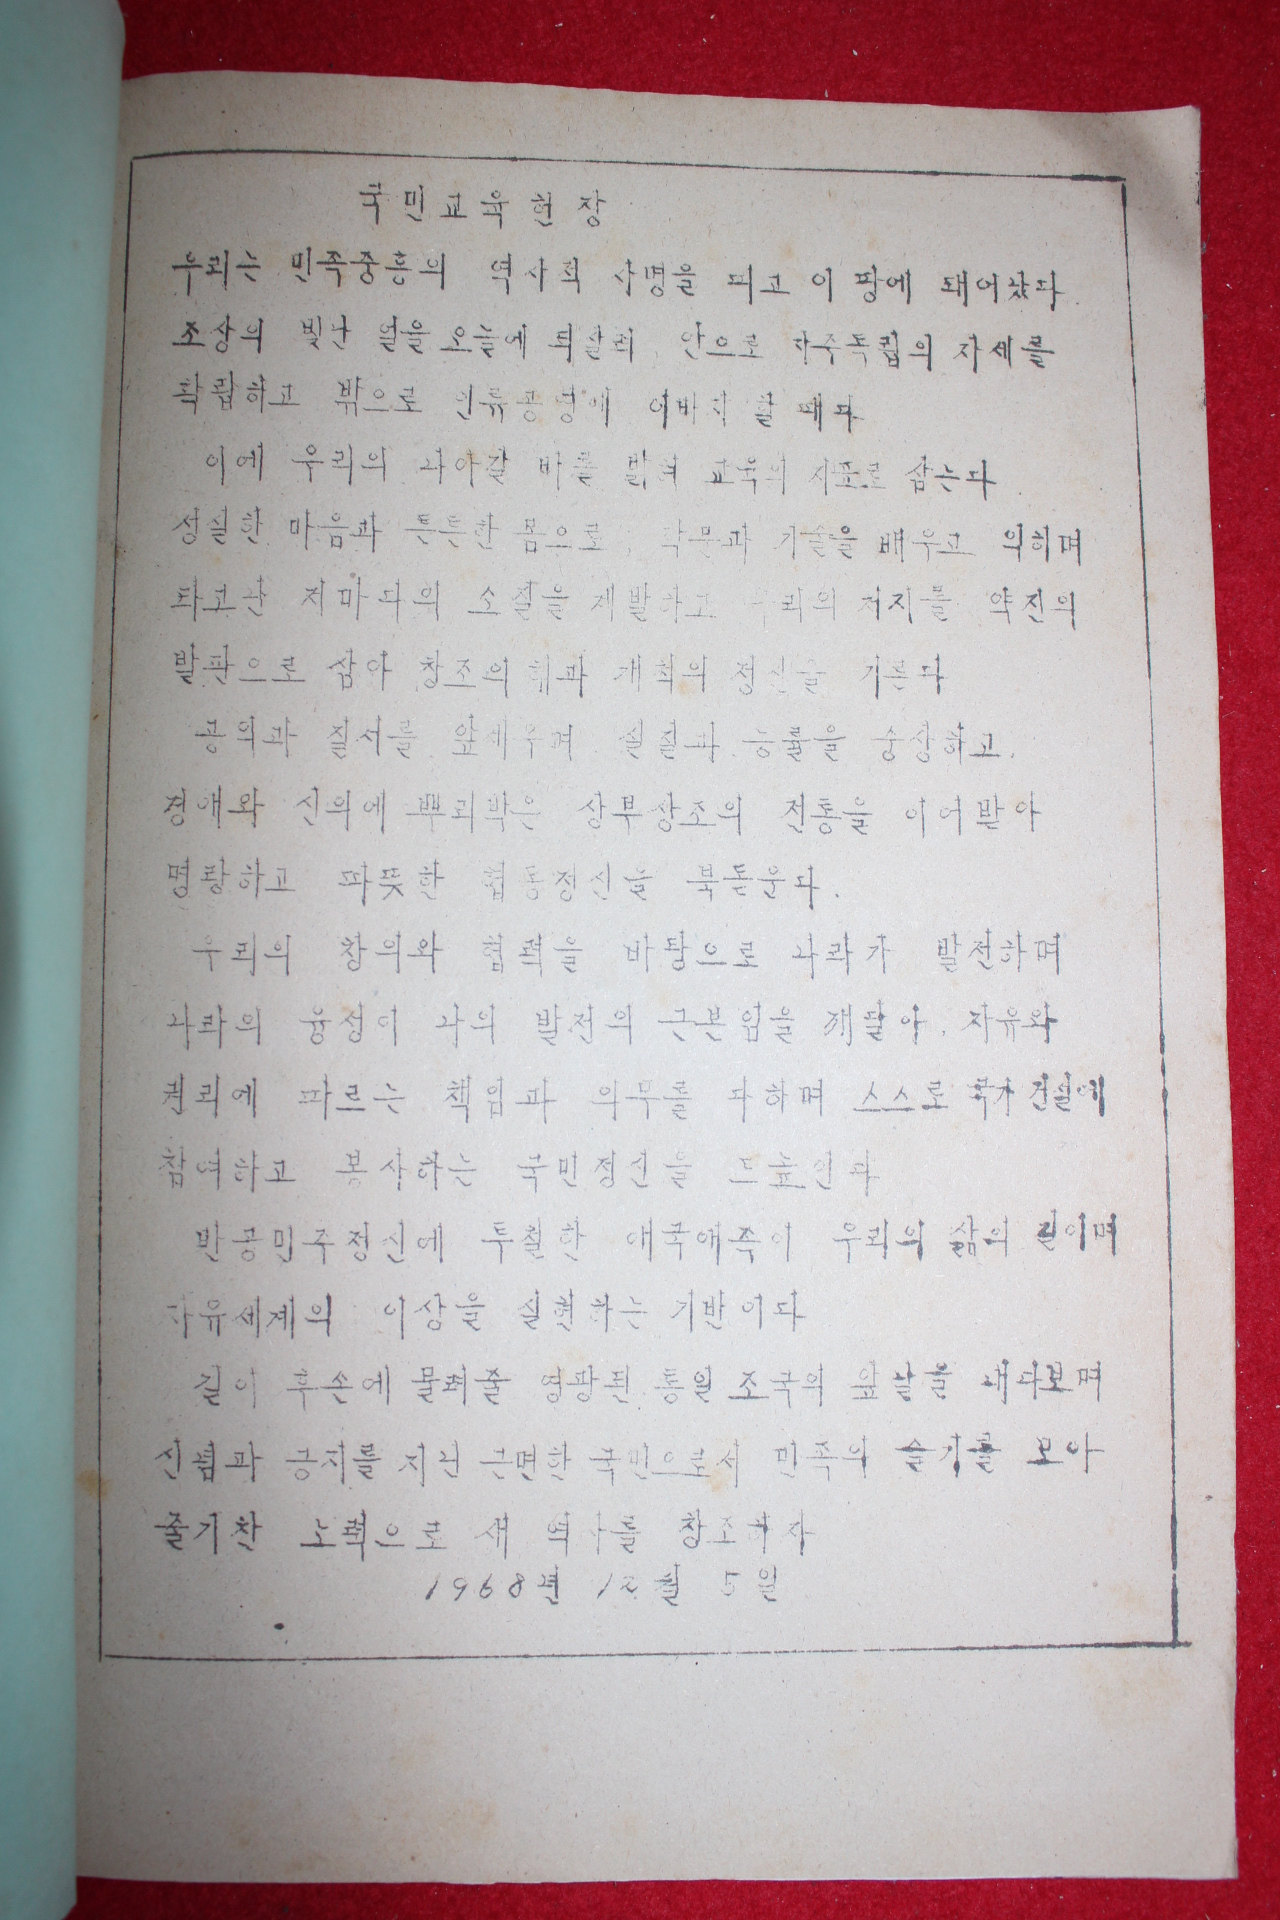 국민교육헌장
우리는 민족중흥의 역사적 사명을 띠고 이 땅에 태어났다
조상의 빛난 얼을 오늘에 되살려 안으로 자주독립의 자세를
확립하고 밖으로 인류공영에 이바지 할 때다
이에 우리의 나아갈 바를 밝혀 교육의 지표로 삼는다
성실한 마음과 튼튼한 몸으로 학문과 기술을 배우고 익히며
타고난 저마다의 소질을 계발하고 우리의 처지를 약진의
발판으로 삼아 창조의 힘과 개척의 정신을 기른다
공익과 질서를 앞세우며 능률과 실질을 숭상하고.
경애와 신의에 뿌리박은 상부상조의 전통을 이어받아
명랑하고 따뜻한 협동정신을 북돋운다.
우리의 창의와 협력을 바탕으로 나라가 발전하며
나라의 융성이 나의 발전의 근본임을 깨달아. 자유와
권리에 따르는 책임과 의무를 다하며 스스로 국가건설에
참여하고 봉사하는 국민정신을 드높인다
반공민주정신에 투철한 애국애족이 우리의 삶의 길이며
자유세계의 이상을 실현하는 기반이다
길이 후손에 물려줄 영광된 통일조국의 앞날을 내다보며
신념과 긍지를 지닌 근면한 국민으로서 민족의 슬기를 모아
줄기찬 노력으로 새 역사를 창조하자
1968년 12월 5일